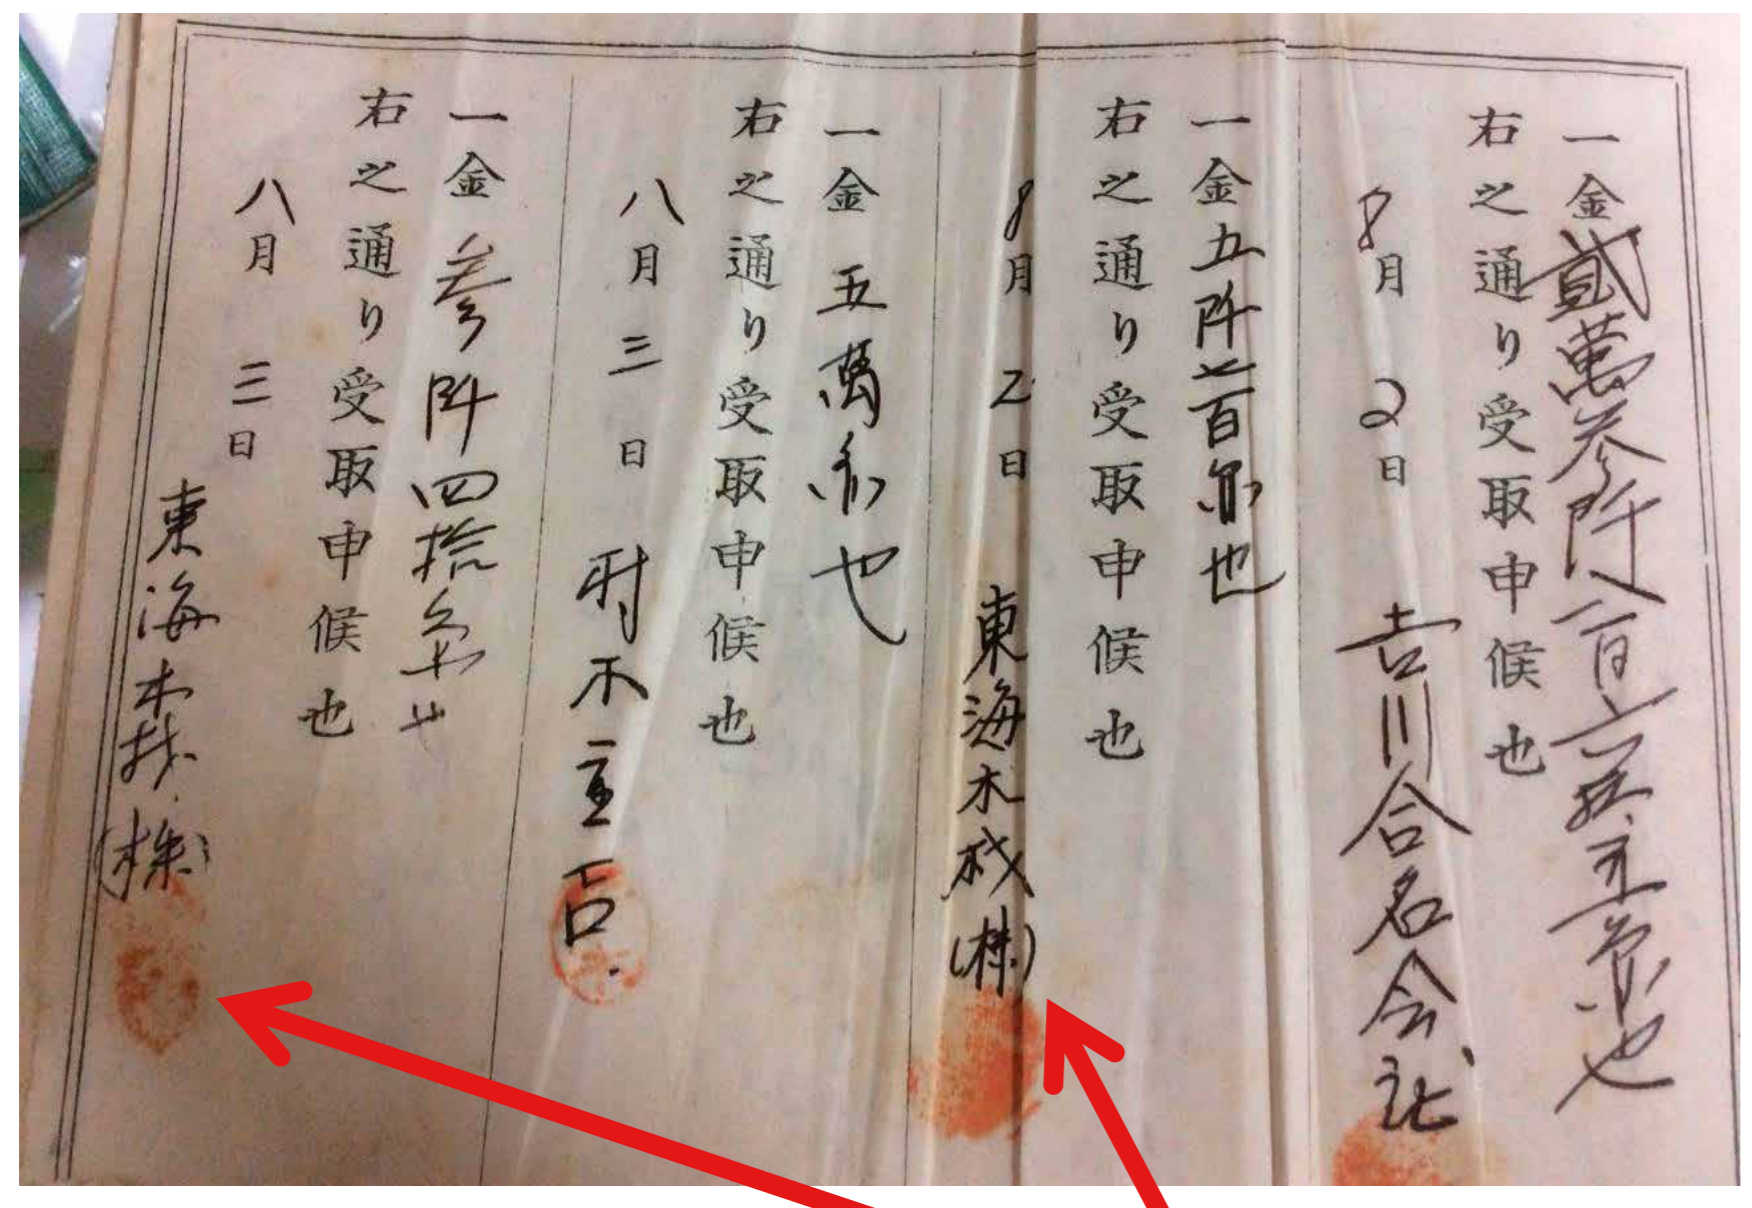 一金貳萬参阡百六拾五円也
右之通り受取申候也
8月2日 吉川合名会社
一金五阡七百円也
右之通り受取申候也
8月2日 東海木材(株)
一金五萬円也
右之通り受取申候也
八月三日
一金参阡四拾円也
右之通り受取申候也
八月三日 東海木材(株)